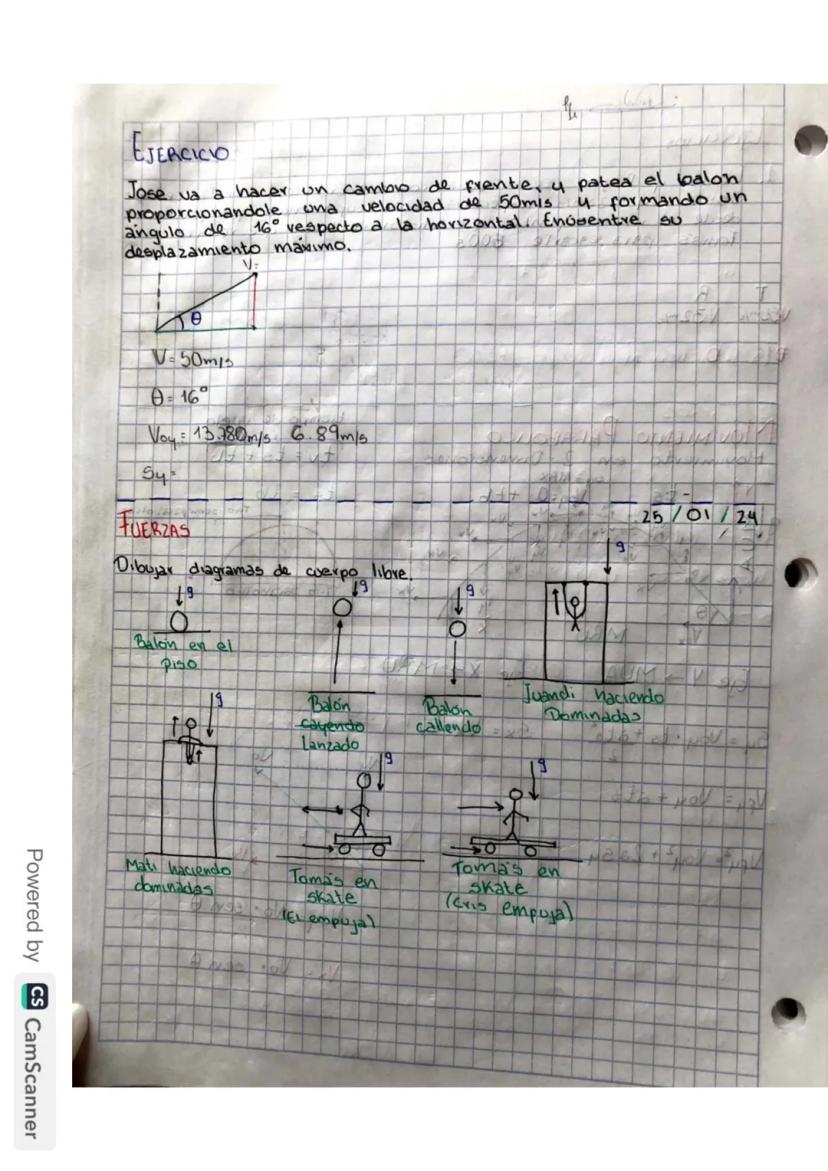 EJERCICIO
Jose va a hacer un cambio de frente, y patea el balon
proporcionandole una velocidad de 50m/s y formando un
angulo de 16° respecto a la horizontal. Encuentre su
desplazamiento máximo.
V=
θ
V= 50m/s
θ= 16°
Voy= 13.780m/s 6.89m/s
Sy=
25/01/24
FUERZAS
Dibujar diagramas de cuerpo libre.
g g g g
Balón en el
piso
Balón
cayendo
Lanzado
Balón
callendo
Juandi haciendo
Dominadas
g g g
Mati haciendo
dominadas
Tomás en
skate
(El empuja)
Tomás en
skate
(Cris empuja)
Powered by CS CamScanner